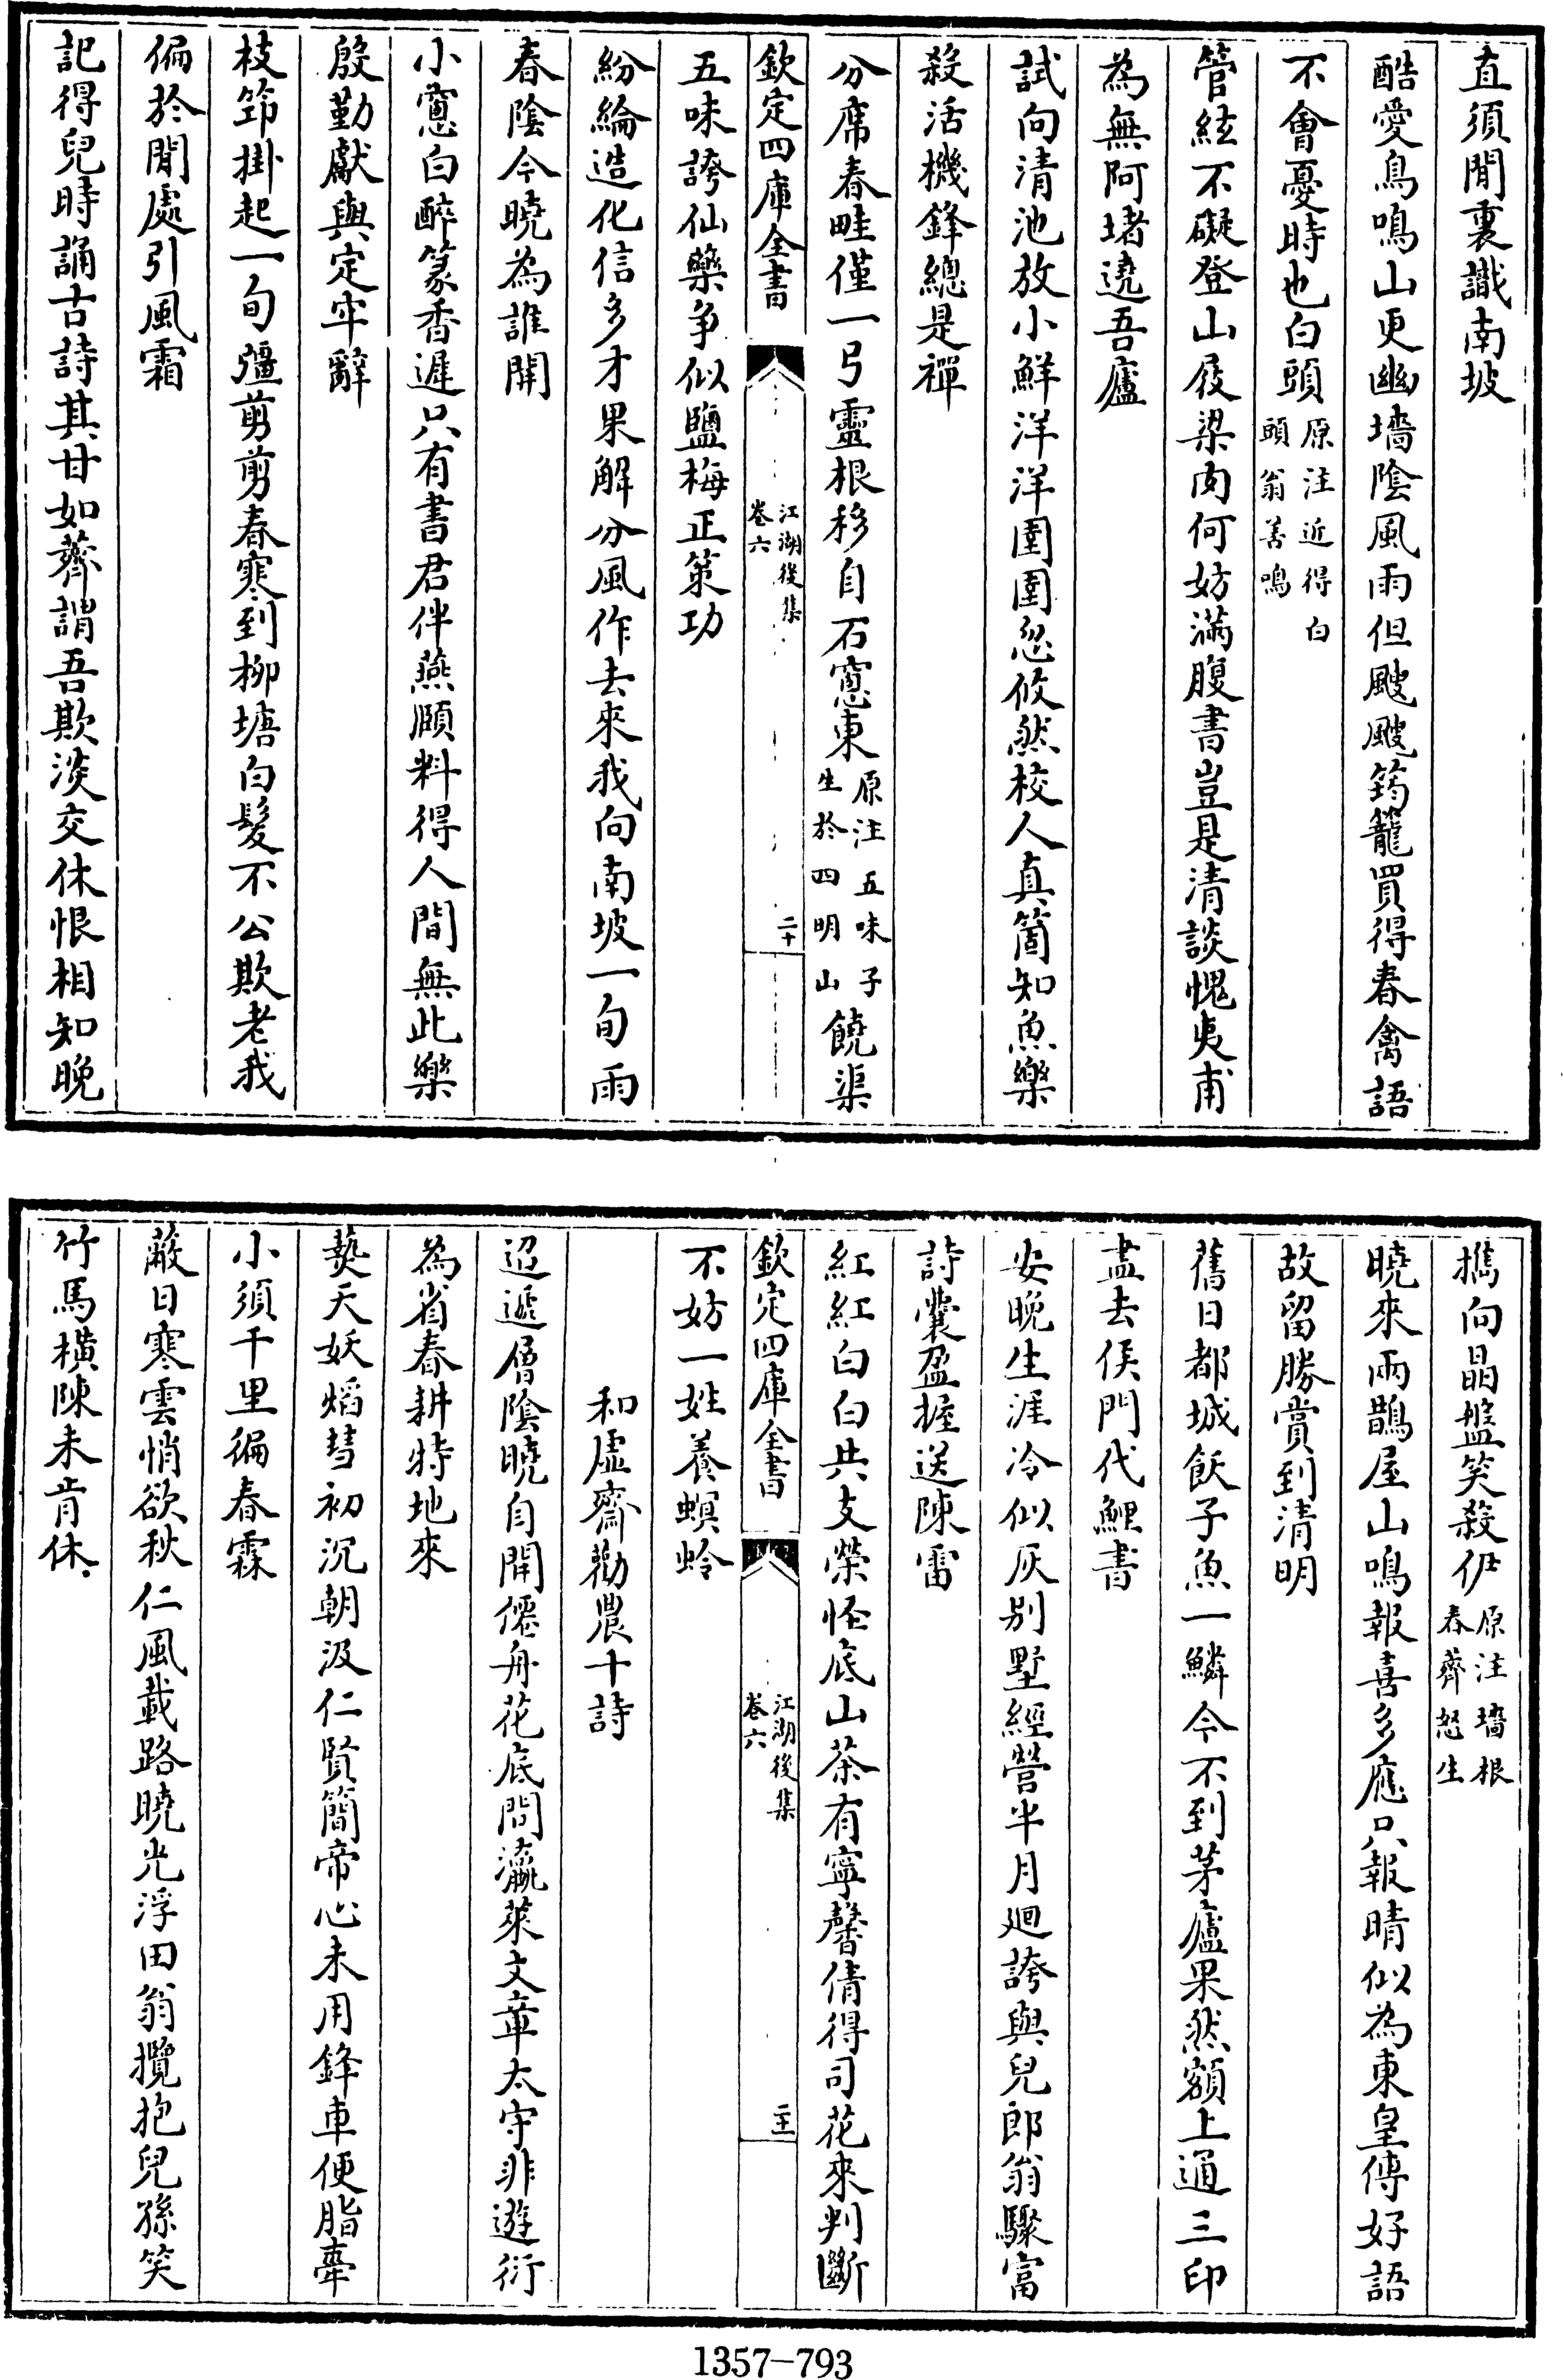 直須閒裏識南坡
酷愛鳥鳴山更幽墻陰風雨但颼颼筠籠買得春禽語
不會憂時也白頭原注近得白頭翁善鳴
管絃不礙登山屐梁肉何妨滿腹書豈是清談愧夷甫
為無阿堵遶吾廬
試向清池放小鮮洋洋圉圉忽攸然校人真箇知魚樂
殺活機鋒總是禪
分席春畦僅一弓靈根移自石窻東原注五味子生於四明山饒渠
欽定四庫全書
江湖後集
卷六
二十
五味誇仙藥争似鹽梅正策功
紛綸造化信多才果解分風作去來我向南坡一句雨
春陰今曉為誰開
小窻白醉篆香遲只有書君伴燕頤料得人間無此樂
殷勤獻與定牢辭
枝筇掛起一旬彊剪剪春寒到柳塘白髮不公欺老我
偏於閒處引風霜
記得兒時誦古詩其甘如薺謂吾欺淡交休恨相知晚
擕向晶盤笑殺伊原注墻根春薺怒生
曉來兩鵲屋山鳴報喜多應只報晴似為東皇傳好語
故留勝賞到清明
舊日都城飫子魚一鱗今不到茅廬果然額上通三印
盡去侯門代鯉書
安晚生涯冷似灰别墅經營半月廻誇與兒郎翁驟富
詩囊盈握送陳雷
紅紅白白共支榮怪底山茶有寧馨倩得司花來判斷
欽定四庫全書
江湖後集
卷六
二十一
不妨一姓養螟蛉
和虛齋勸農十詩
迢遞層陰曉自開僊舟花底問瀛萊文章太守非遊衍
為省春耕特地來
爇天妖熖彗初沉朝汲仁賢簡帝心未用鋒車便脂牽
小須千里徧春霖
蔽日寒雲悄欲秋仁風載路曉光浮田翁攬抱兒孫笑
竹馬横陳未肯休
1357-793